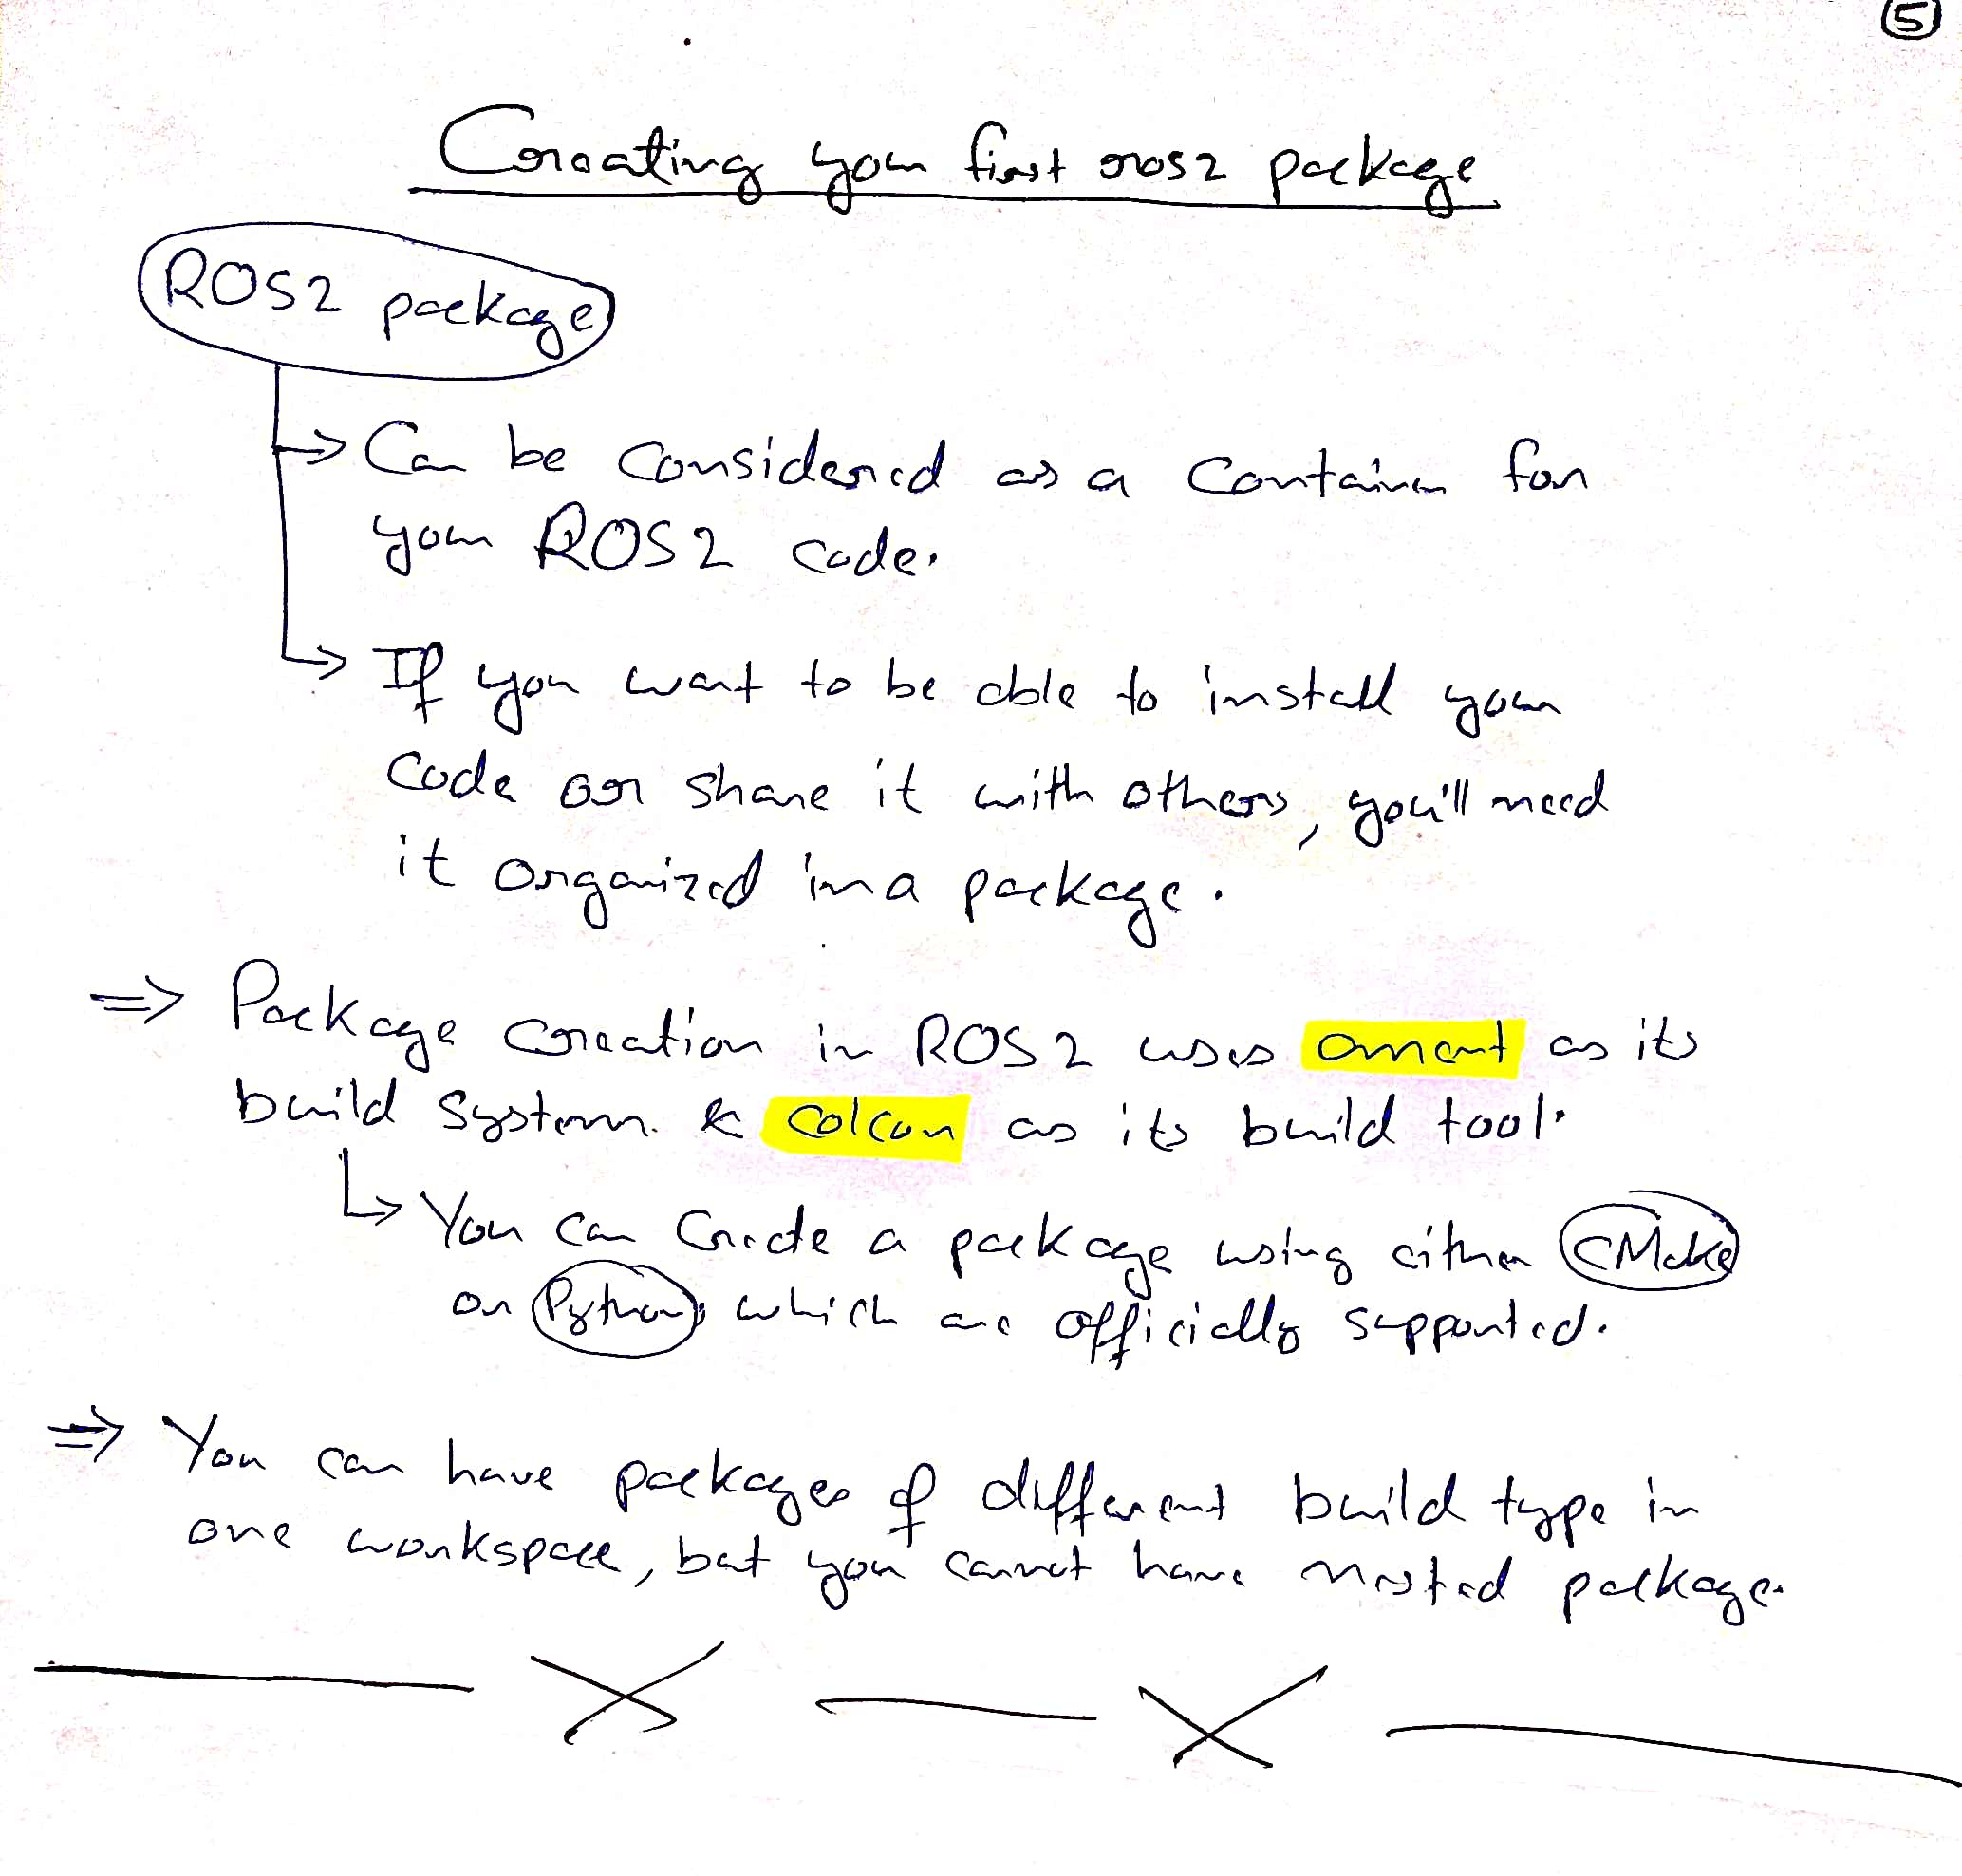 5
Creating your first ros2 package
ROS2 package
→ Can be considered as a container for
your ROS2 code.
→ If you want to be able to install your
code or share it with others, you'll need
it organized in a package.
⇒ Package creation in ROS2 uses ament as its
build system & colcon as its build tool.
↳ You can create a package using either CMake
or Python, which are officially supported.
⇒ You can have packages of different build type in
one workspace, but you cannot have nested package.